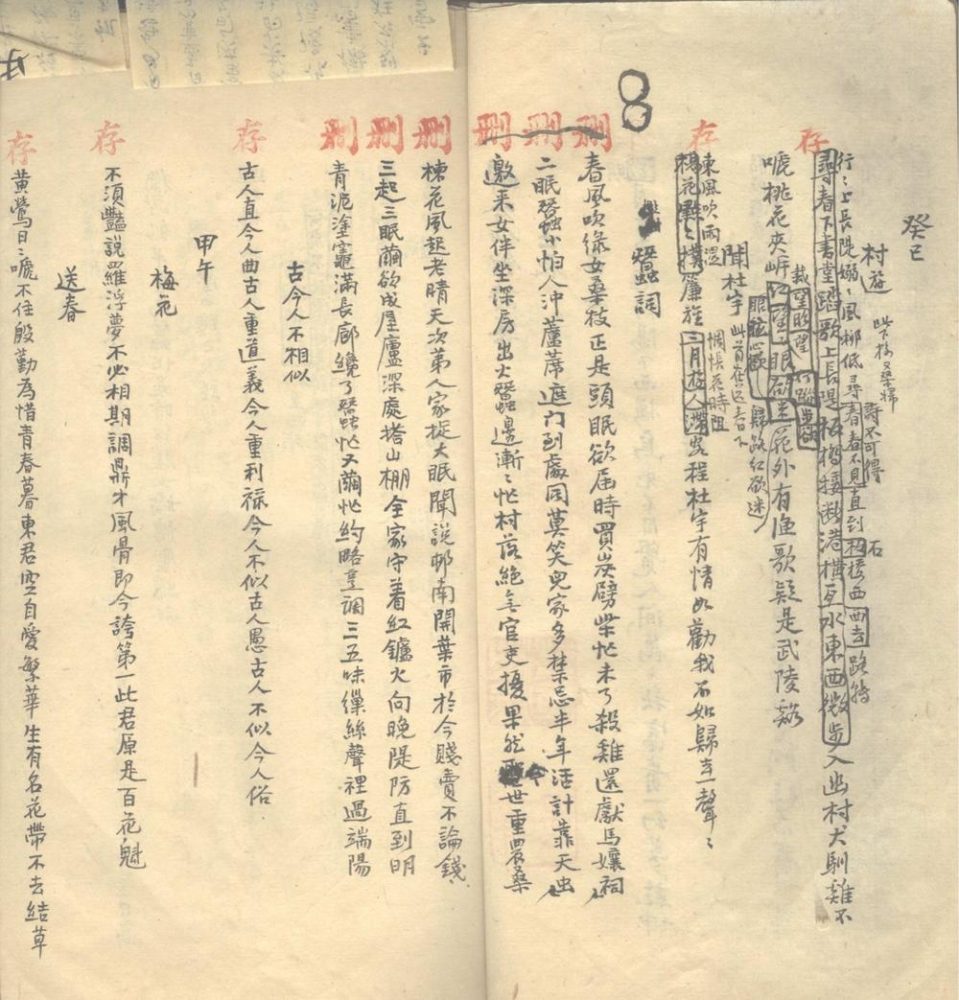 8
癸巳
村游
此下接又榮歸
行〻上長隄嫋〻風柳低尋春春不見直到石橋西
尋春下書堂踏歌上長隄板橋接斷港橫亘水東西微步入幽村犬馴雞不
存
唬桃花夾岸紅望〻眼欲迷花外有漁歌疑是武陵谿
歸路紅欲迷
存
聞杜宇
楝風吹雨溼
楊花飄〻撲簾旌二月遊人滯客程杜宇有情如勸我不如歸去一聲〻
惆悵花時阻
蠶詞
刪
春風吹綠女桑枝正是頭眠欲届時買炭劈柴忙未了殺雞還獻馬孃祠
刪
二眠蠶小怕人沖蘆蓆遮门到處同莫笑兒家多禁忌半年活計靠天虫
刪
邀來女伴坐深房出火蠶邊漸〻忙村落絕無官吏擾果然世重農桑
刪
楝花風起老晴天次第人家捉大眠聞說邨南開葉市於今賤賣不論錢
刪
三起三眠繭欲成屋廬深處搭山棚全家守着紅鑪火向晚隄防直到明
刪
青泥塗竈滿長廊纔了蠶忙又繭忙約略烹調三五味繅絲聲裡過端陽
古今人不相似
存
古人直今人曲古人重道義今人重利祿今人不似古人愚古人不似今人俗
甲午
梅花
存
不須豔說羅浮夢不必相期調鼎才風骨即今誇第一此君原是百花魁
送春
存
黃鶯日〻唬不住殷勤為惜青春暮東君空自愛繁華生有名花帶不去結草